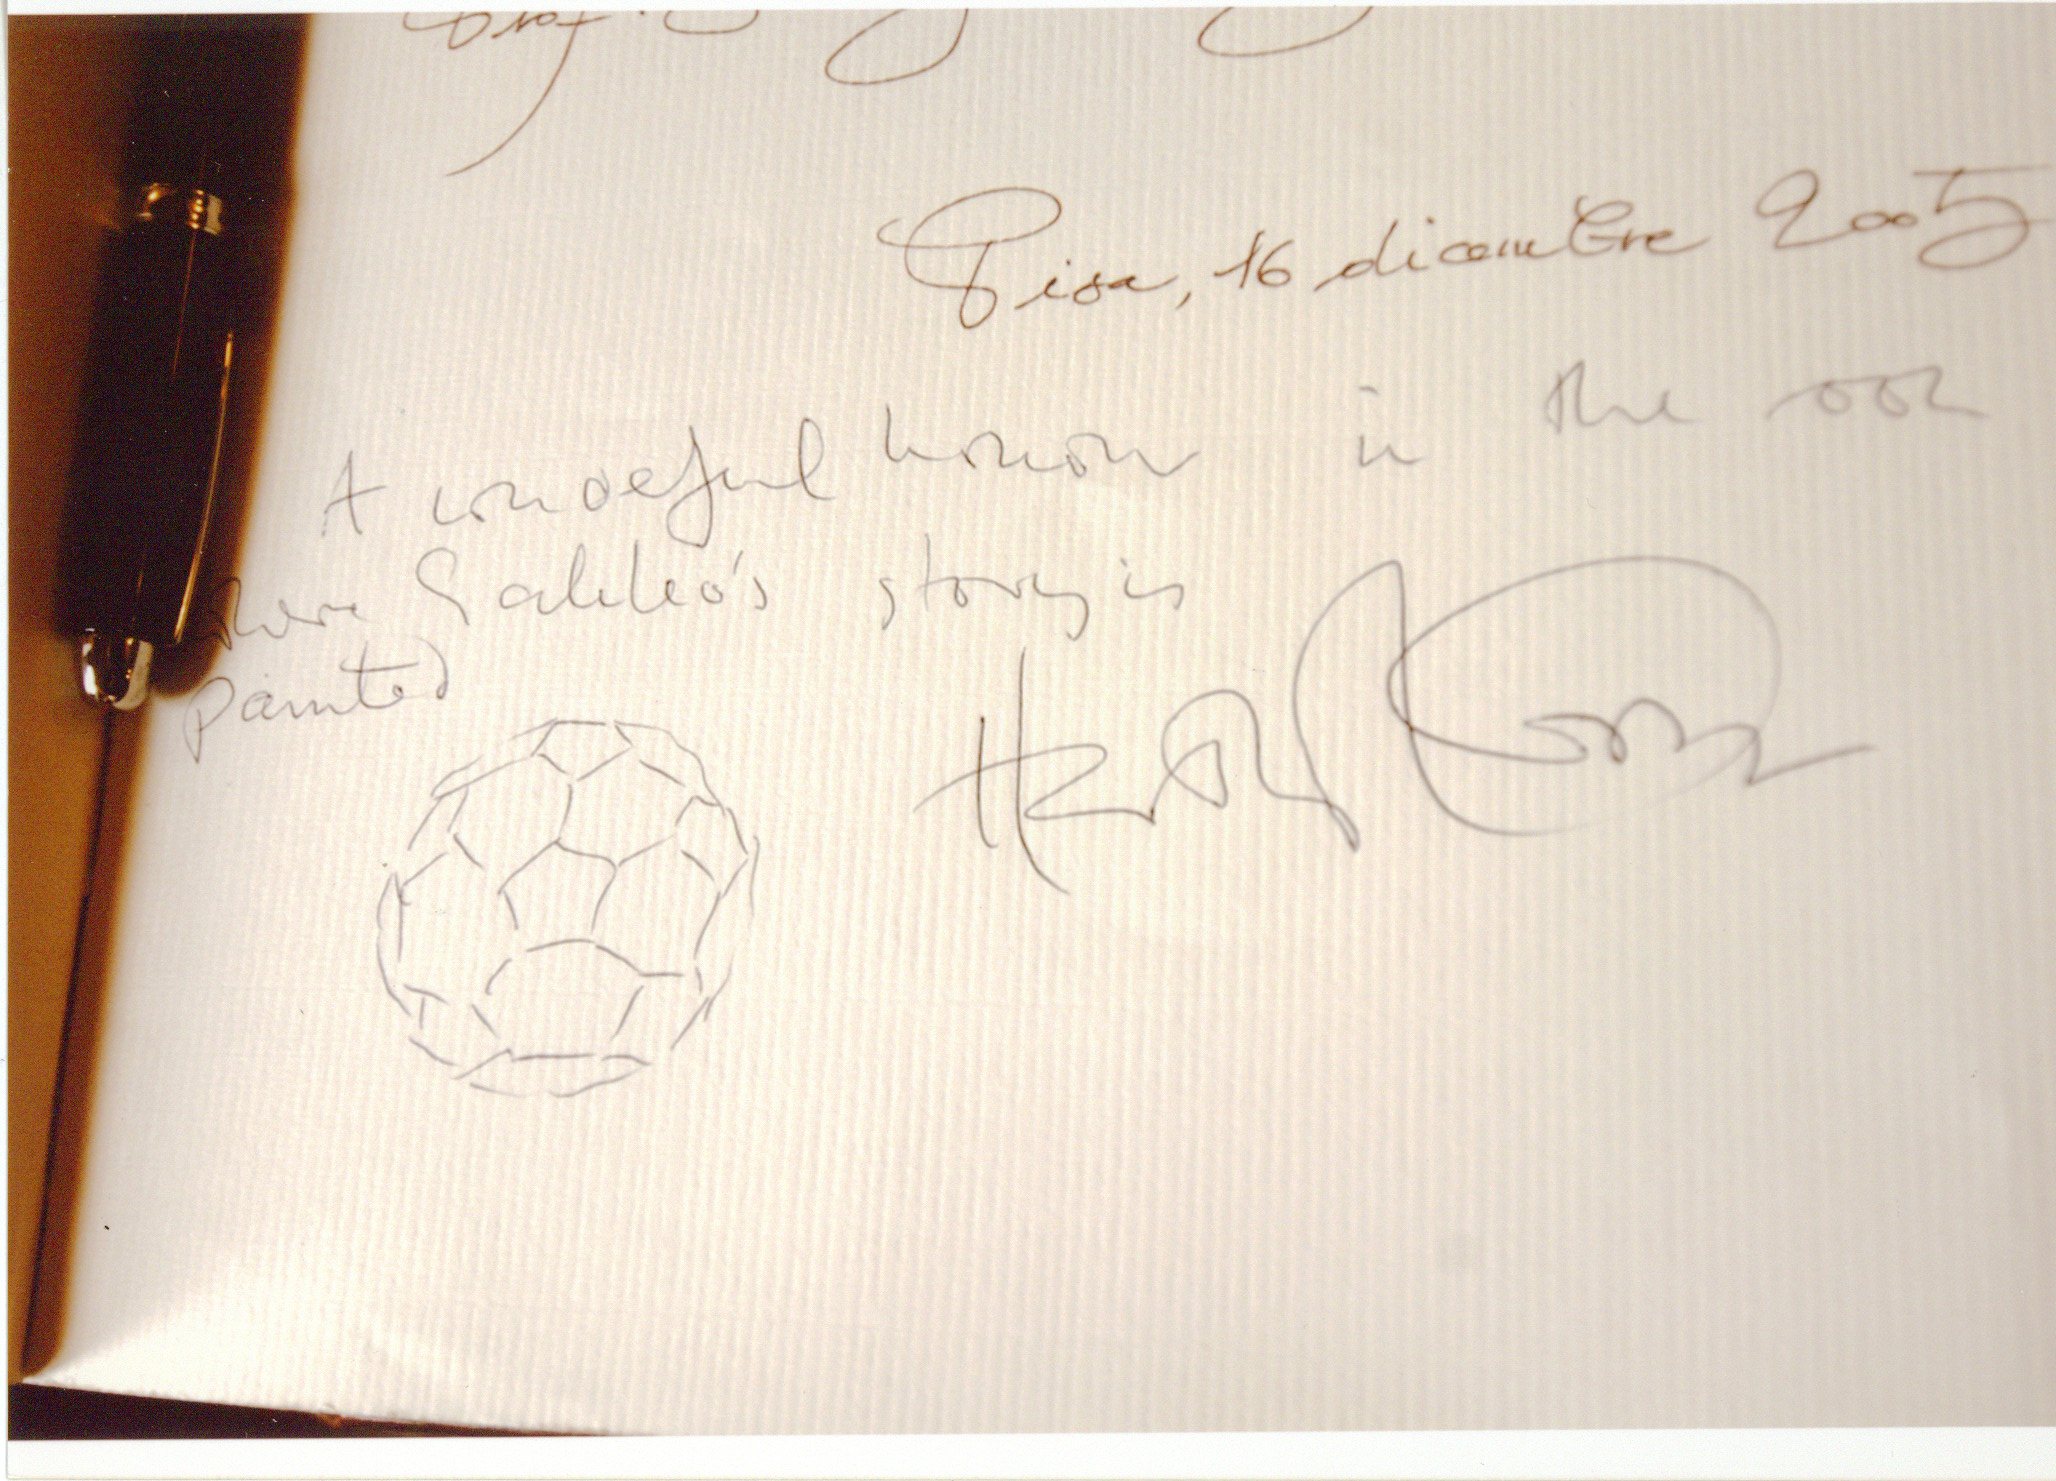 Prof.
Pisa, 16 dicembre 2005
A wonderful honour in the room
where Galileo's story is
painted